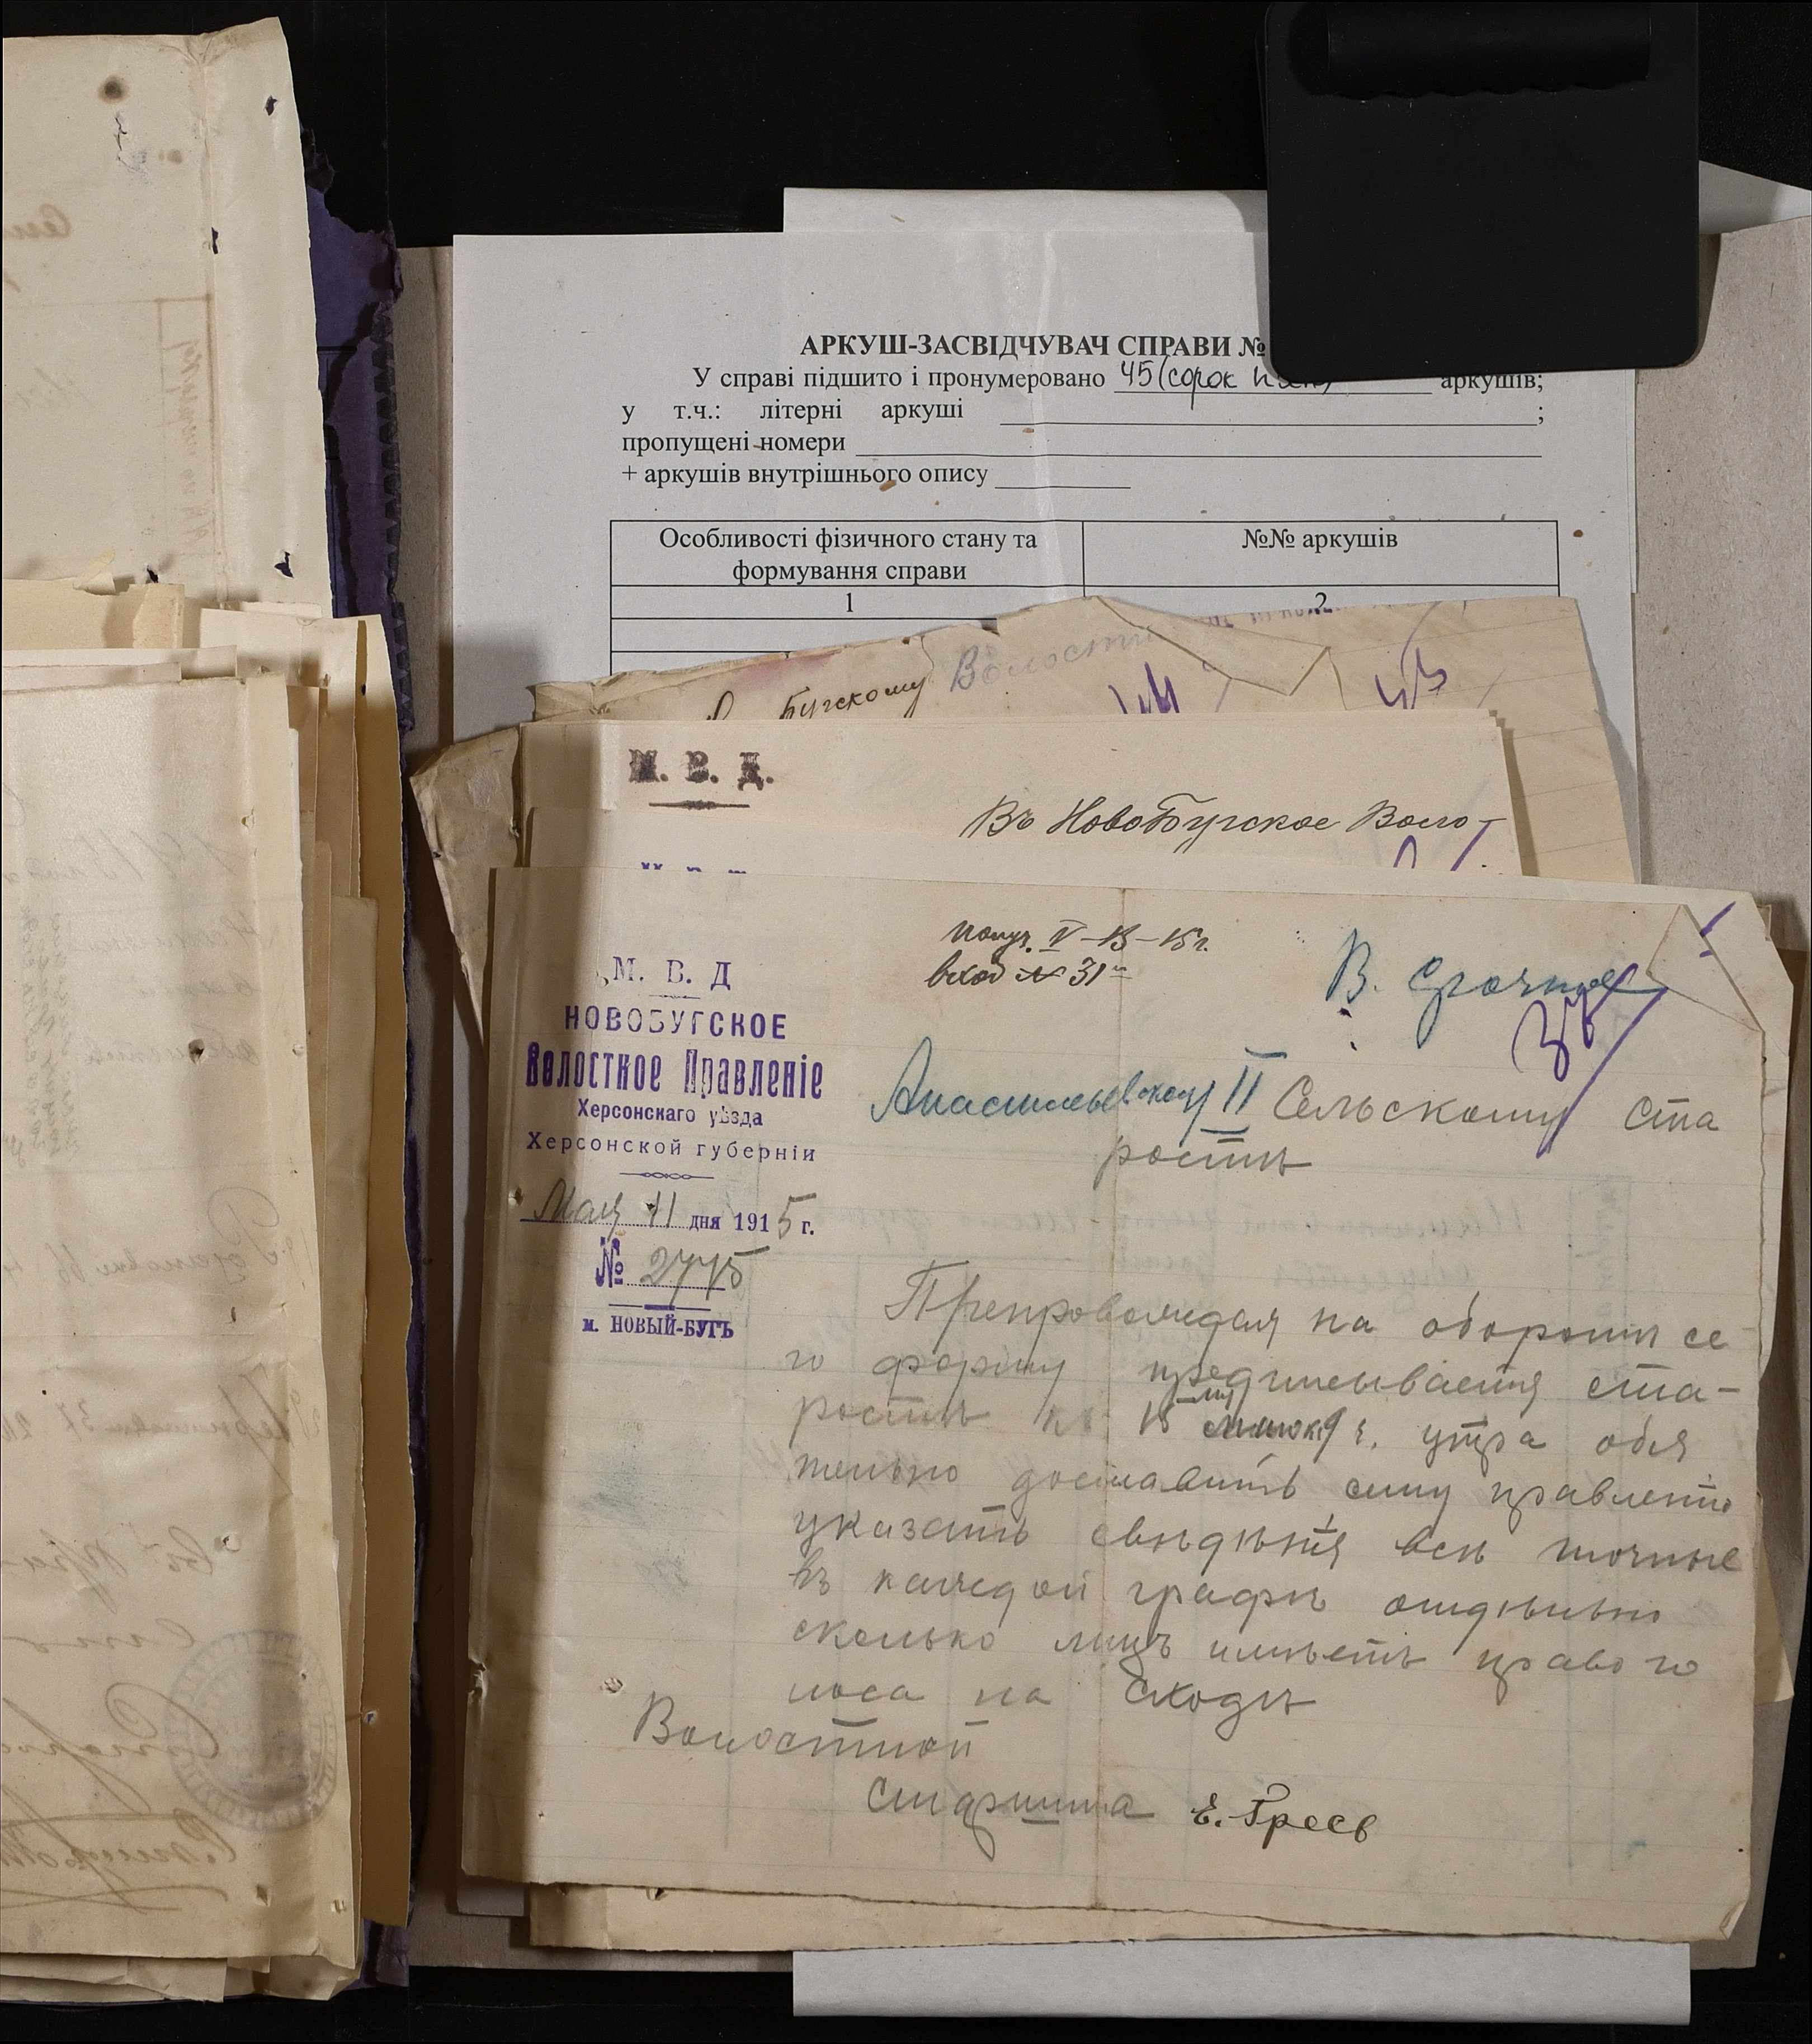 АРКУШ-ЗАСВІДЧУВАЧ СПРАВИ №
У справі підшито і пронумеровано 45 (сорок аркушів;
у т.ч.: літерні аркуші ;
пропущені номери
+ аркушів внутрішнього опису
Особливості фізичного стану та формування справи
№№ аркушів
1
2
Бугскому Волостн
М. В. Д.
Въ Новобугское Воло-
получ. V-13-15 г.
вход № 31
В. Срочное
М. В. Д
НОВОБУГСКОЕ
Волостное Правленіе
Херсонскаго уѣзда
Херсонской губерніи
Мая 11 дня 1915 г.
№ 2775
м. НОВЫЙ-БУГЪ
II Сельскому Ста
ростѣ
Препровождая на оборотѣ се
го форму предписывается ста-
ростѣ къ 15 9 ч. утра обя
тельно доставить сему правленію
указать свѣдѣнія всѣ точные
въ каждой графѣ отдѣльно
сколько лицъ имѣетъ право го
лоса на сходѣ
Волостной
Старшина Е. Греев